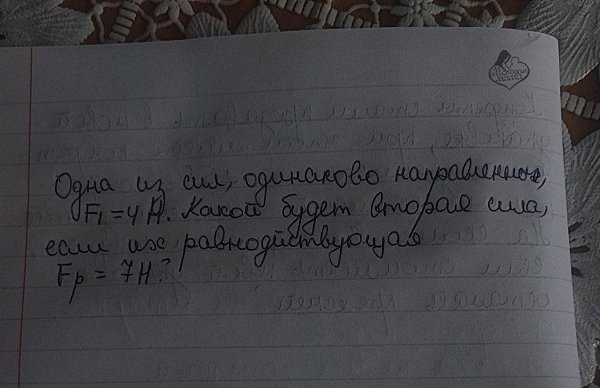 Молодая
мама
Одна из сил, одинаково направленных,
F1 = 4 Н. Какой будет вторая сила,
если их равнодйствующая
Fр = 7Н?